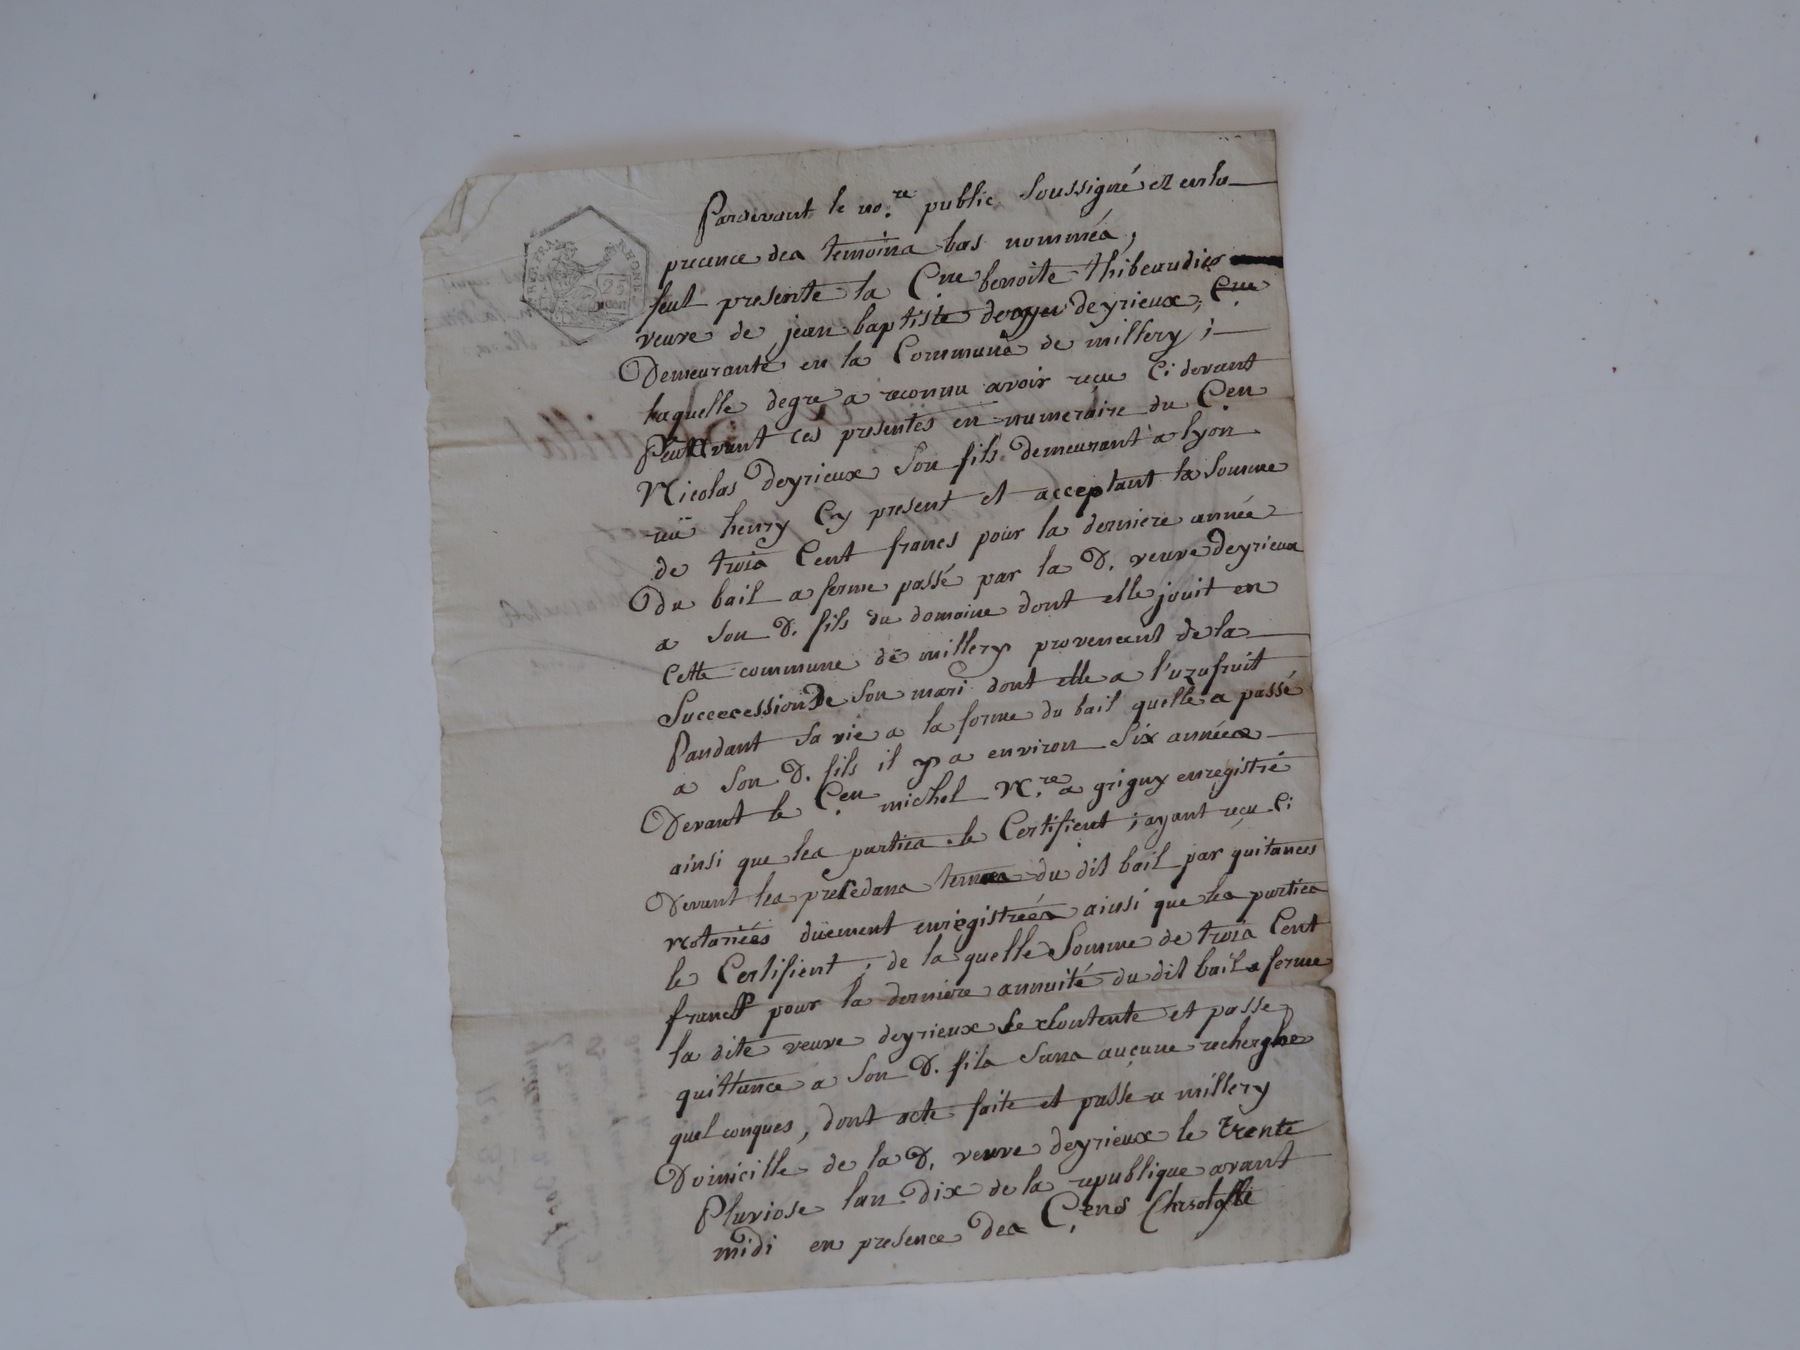 REP. FRA. RHONE
25
CEN
Pardevant le no.re public Soussigné et en la
precence des temoins bas nommés,
feut presente la C.ne benoite thibeaudier
veuve de jean baptiste deyrieux, C.ne
Demeurante en la Commune de millery;
laquelle degre a reconnu avoir reçu Ci devant
et avant ces presentes en numeraire du C.en
Nicolas Deyrieux Son fils demeurant a lyon
rüe henry Cy present et acceptant la Somme
de trois Cent francs pour la derniere année
Du bail a ferme passé par la D. veuve Deyrieux
a Son D. fils du domaine dont elle jouit en
Cette commune de millery provenant de la
Succecession De Son mari dont elle a l'uzufruit
Pandant Sa vie a la forme du bail quelle a passé
a Son D. fils il y a environ Six années
Devant le C.en michel N.re a grigny enregistré
ainsi que les parties le Certifient; ayant reçu Ci
Devant les precedans termes du dit bail par quitances
notariées düement enregistrées ainsi que les parties
le Certifient, de la quelle Somme de trois Cent
francs pour la derniere annuité du dit bail a ferme
la dite veuve deyrieux Se Contente et passe
quittance a Son D. fils Sans auçune recherche
quel conques, dont acte faite et passe a millery
Domicille de la D. veuve deyrieux le trente
Pluviose lan dix de la republique avant
midi en presence des C.ens Christofle